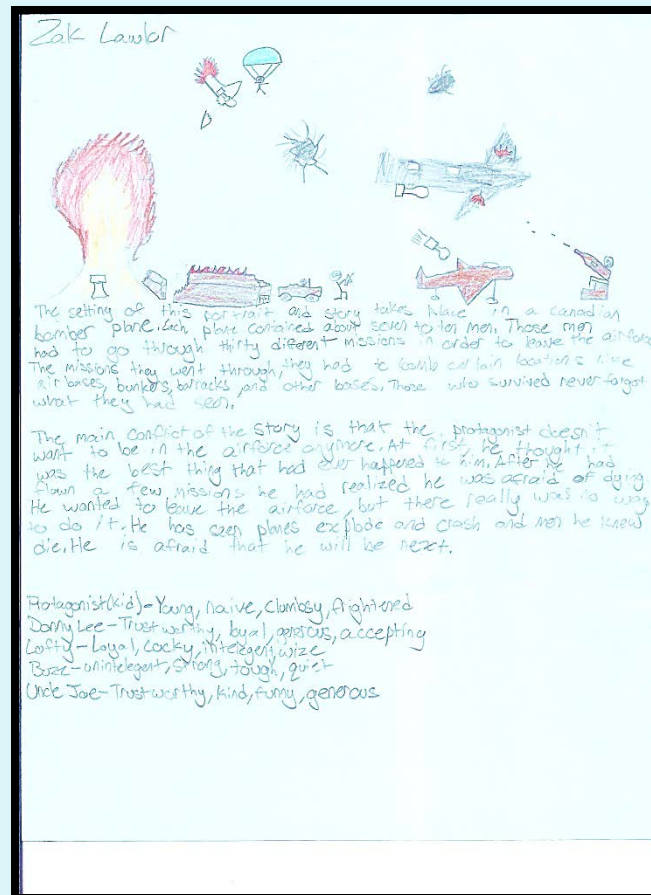 Zak Lawlor
The setting of this portrait and story takes place in a canadian
bomber plane. Each plane contained about seven to ten men. Those men
had to go through thirty different missions in order to leave the airforce
The missions they went through, they had to bomb certain locations like
air bases, bunkers, barracks, and other bases. Those who survived never forgot
what they had seen.
The main conflict of the story is that the protagonist doesn't
want to be in the airforce anymore. At first, he thought it
was the best thing that had ever happened to him. After he had
flown a few missions he had realized he was afraid of dying
He wanted to leave the airforce, but there really was no way
to do it. He has seen planes explode and crash and men he knew
die. He is afraid that he will be next.
Protagonist(kid)-Young, naive, clumbsy, frightened
Donny Lee-Trustworthy, loyal, generous, accepting
Lofty-Loyal, cocky, intelegent, wize
Buzz-unintelegent, strong, tough, quiet
Uncle Joe-Trustworthy, kind, funny, generous